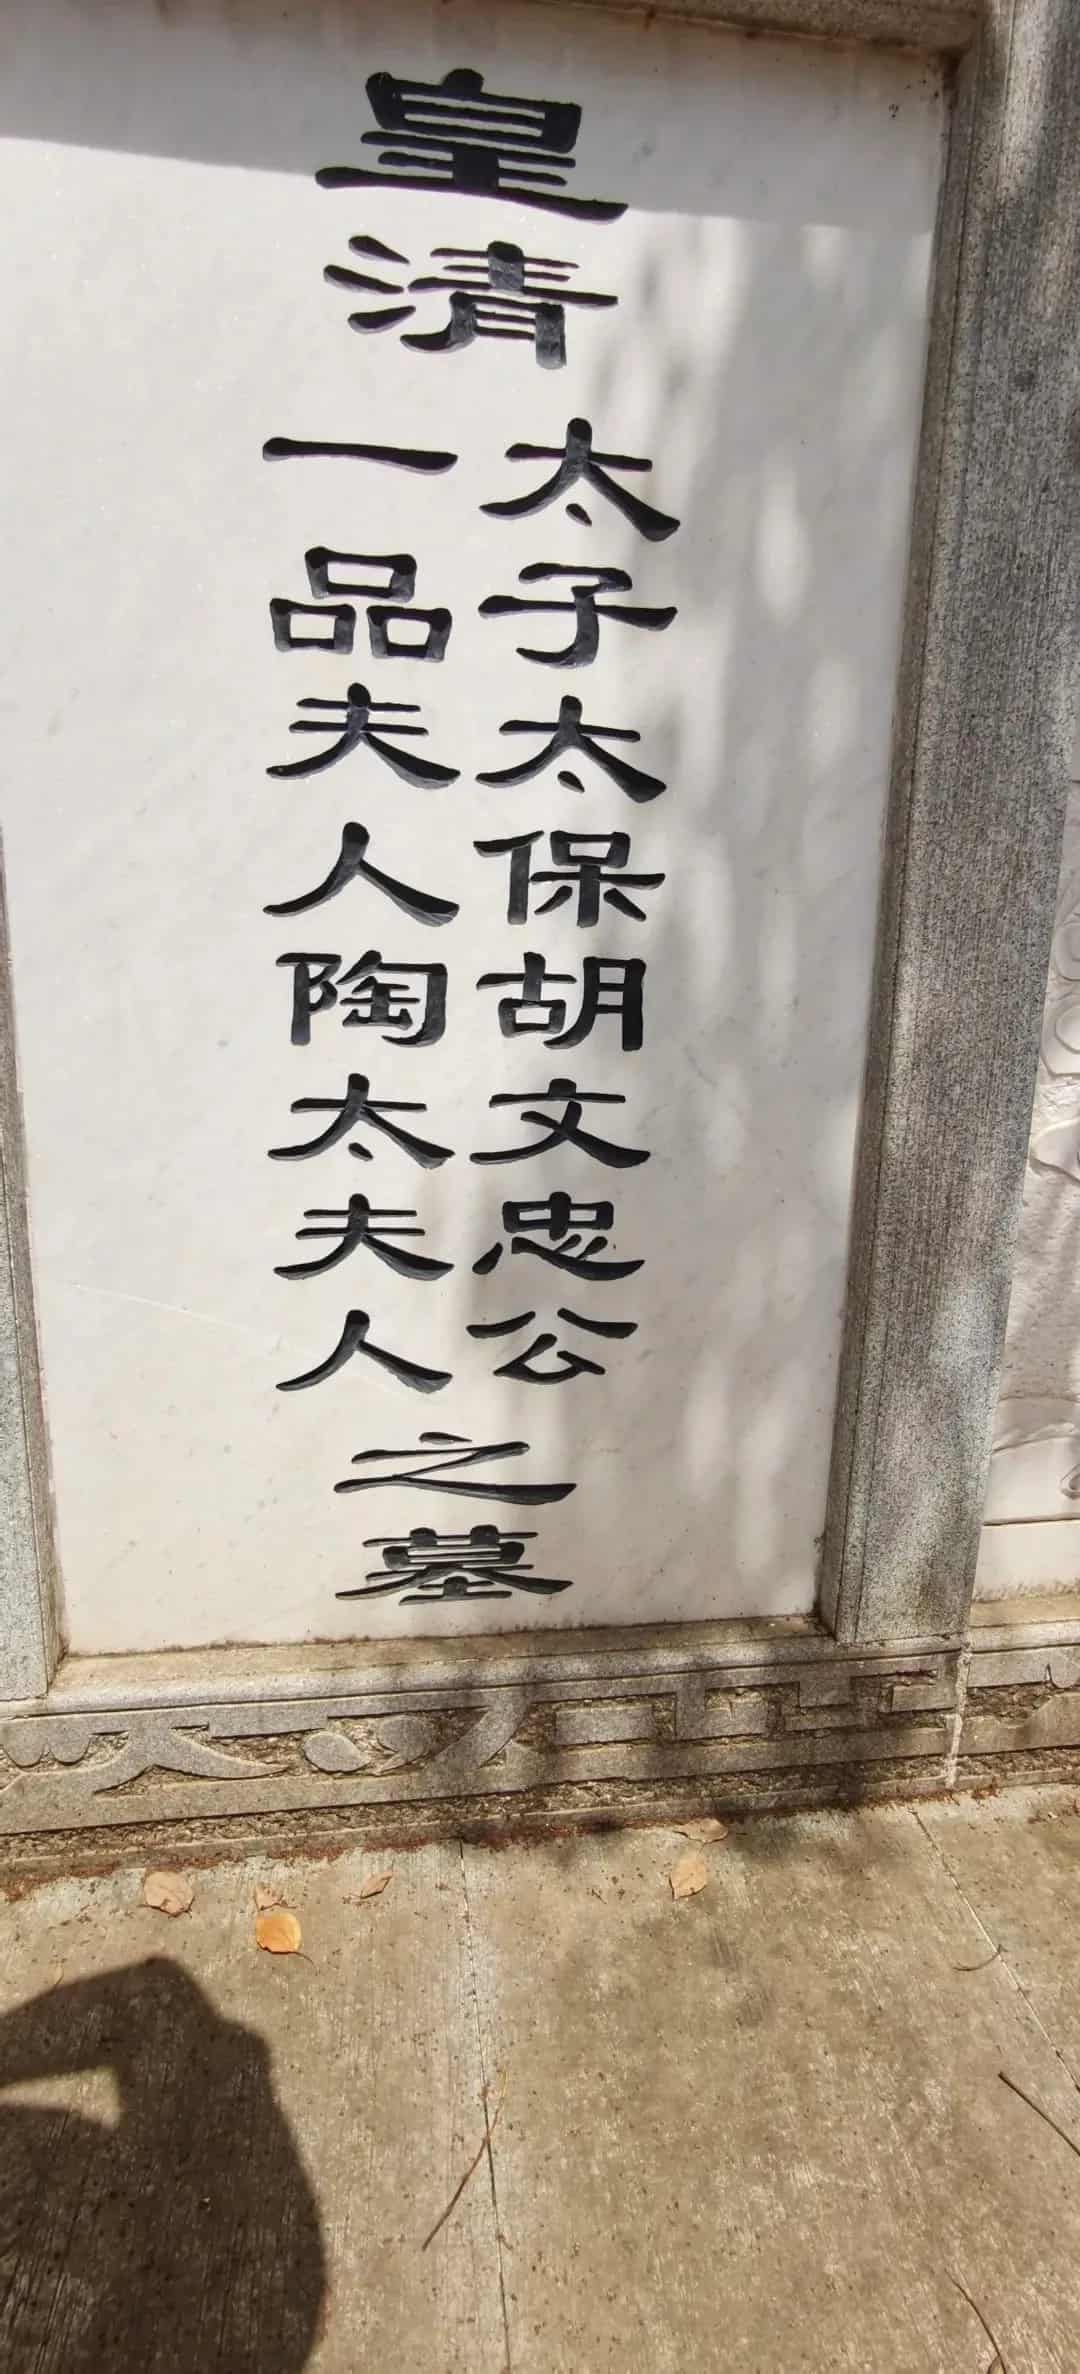 皇清
太子太保胡文忠公
一品夫人陶太夫人
之墓